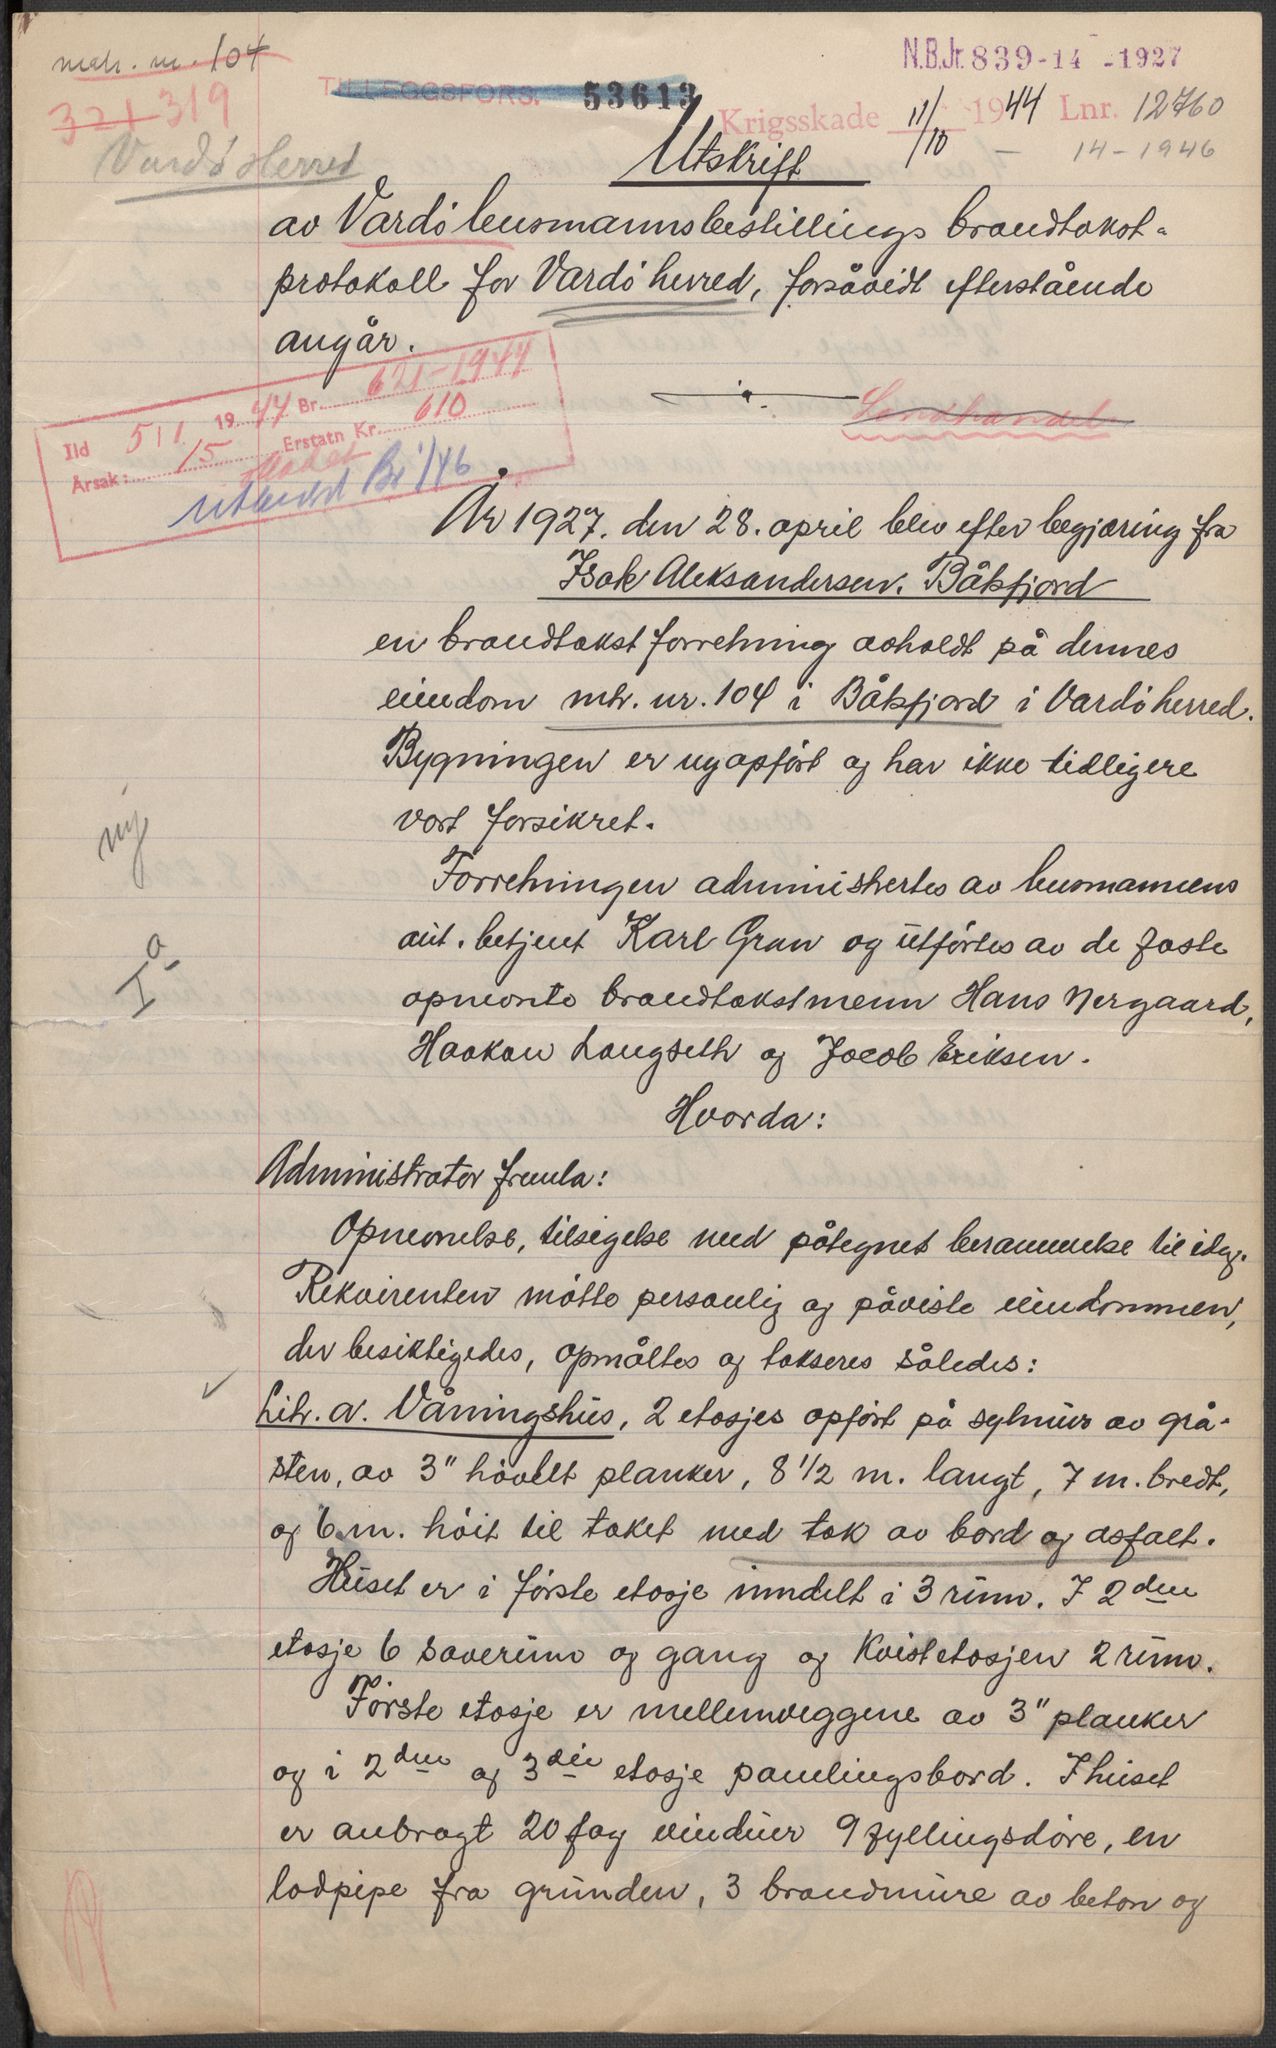 matr. nr. 104
N.B.Jr. 839-14-1927
TILLEGGSFORS. 53613
321 319
Krigsskade 11/10 1944 Lnr. 12760
14-1946
Vardö Herred
Utskrift
av Vardö lensmannsbestillings brandtakst-
protokoll for Vardö herred, forsåvidt efterstående
angår.
Landhandel
Ild 5/11 1944 Br. 621-1944
Årsak: 15 Erstatn Kr. 610
År 1927. den 28. april blev efter begjæring fra
Isak Aleksandersen. Båtsfjord
en brandtakstforretning avholdt på dennes
eiendom mtr. nr. 104 i Båtsfjord i Vardö herred.
Bygningen er nyopfört og har ikke tidligere
vært forsikret.
ny
Forretningen administrertes av lensmannens
aut. betjent Karl Gran og utförtes av de faste
I a
opnevnte brandtakstmenn Hans Nergaard,
Haakon Langseth og Jacob Eriksen.
Hvorda:
Administrator fremla:
Opnevnelse, tilsigelse med påtegnet berammelse til idag.
Rekvirenten mötte personlig og påviste eiendommen,
der besiktigedes, opmåltes og takseres således:
Litr. a. Våningshus, 2 etasjes opfört på sylmur av grå-
sten, av 3" hövelt planker, 8 1/2 m. langt, 7 m. bredt,
og 6 m. höit til taket med tak av bord og asfalt.
Huset er i förste etasje inndelt i 3 rum. I 2den
etasje 6 soverum og gang og kvistetasjen 2 rum.
Förste etasje er mellemveggene av 3" planker
og i 2den og 3die etasje panelingsbord. I huset
er anbragt 20 fag vinduer 9 fyllingsdöre, en
lodpipe fra grunden, 3 brandmure av beton og